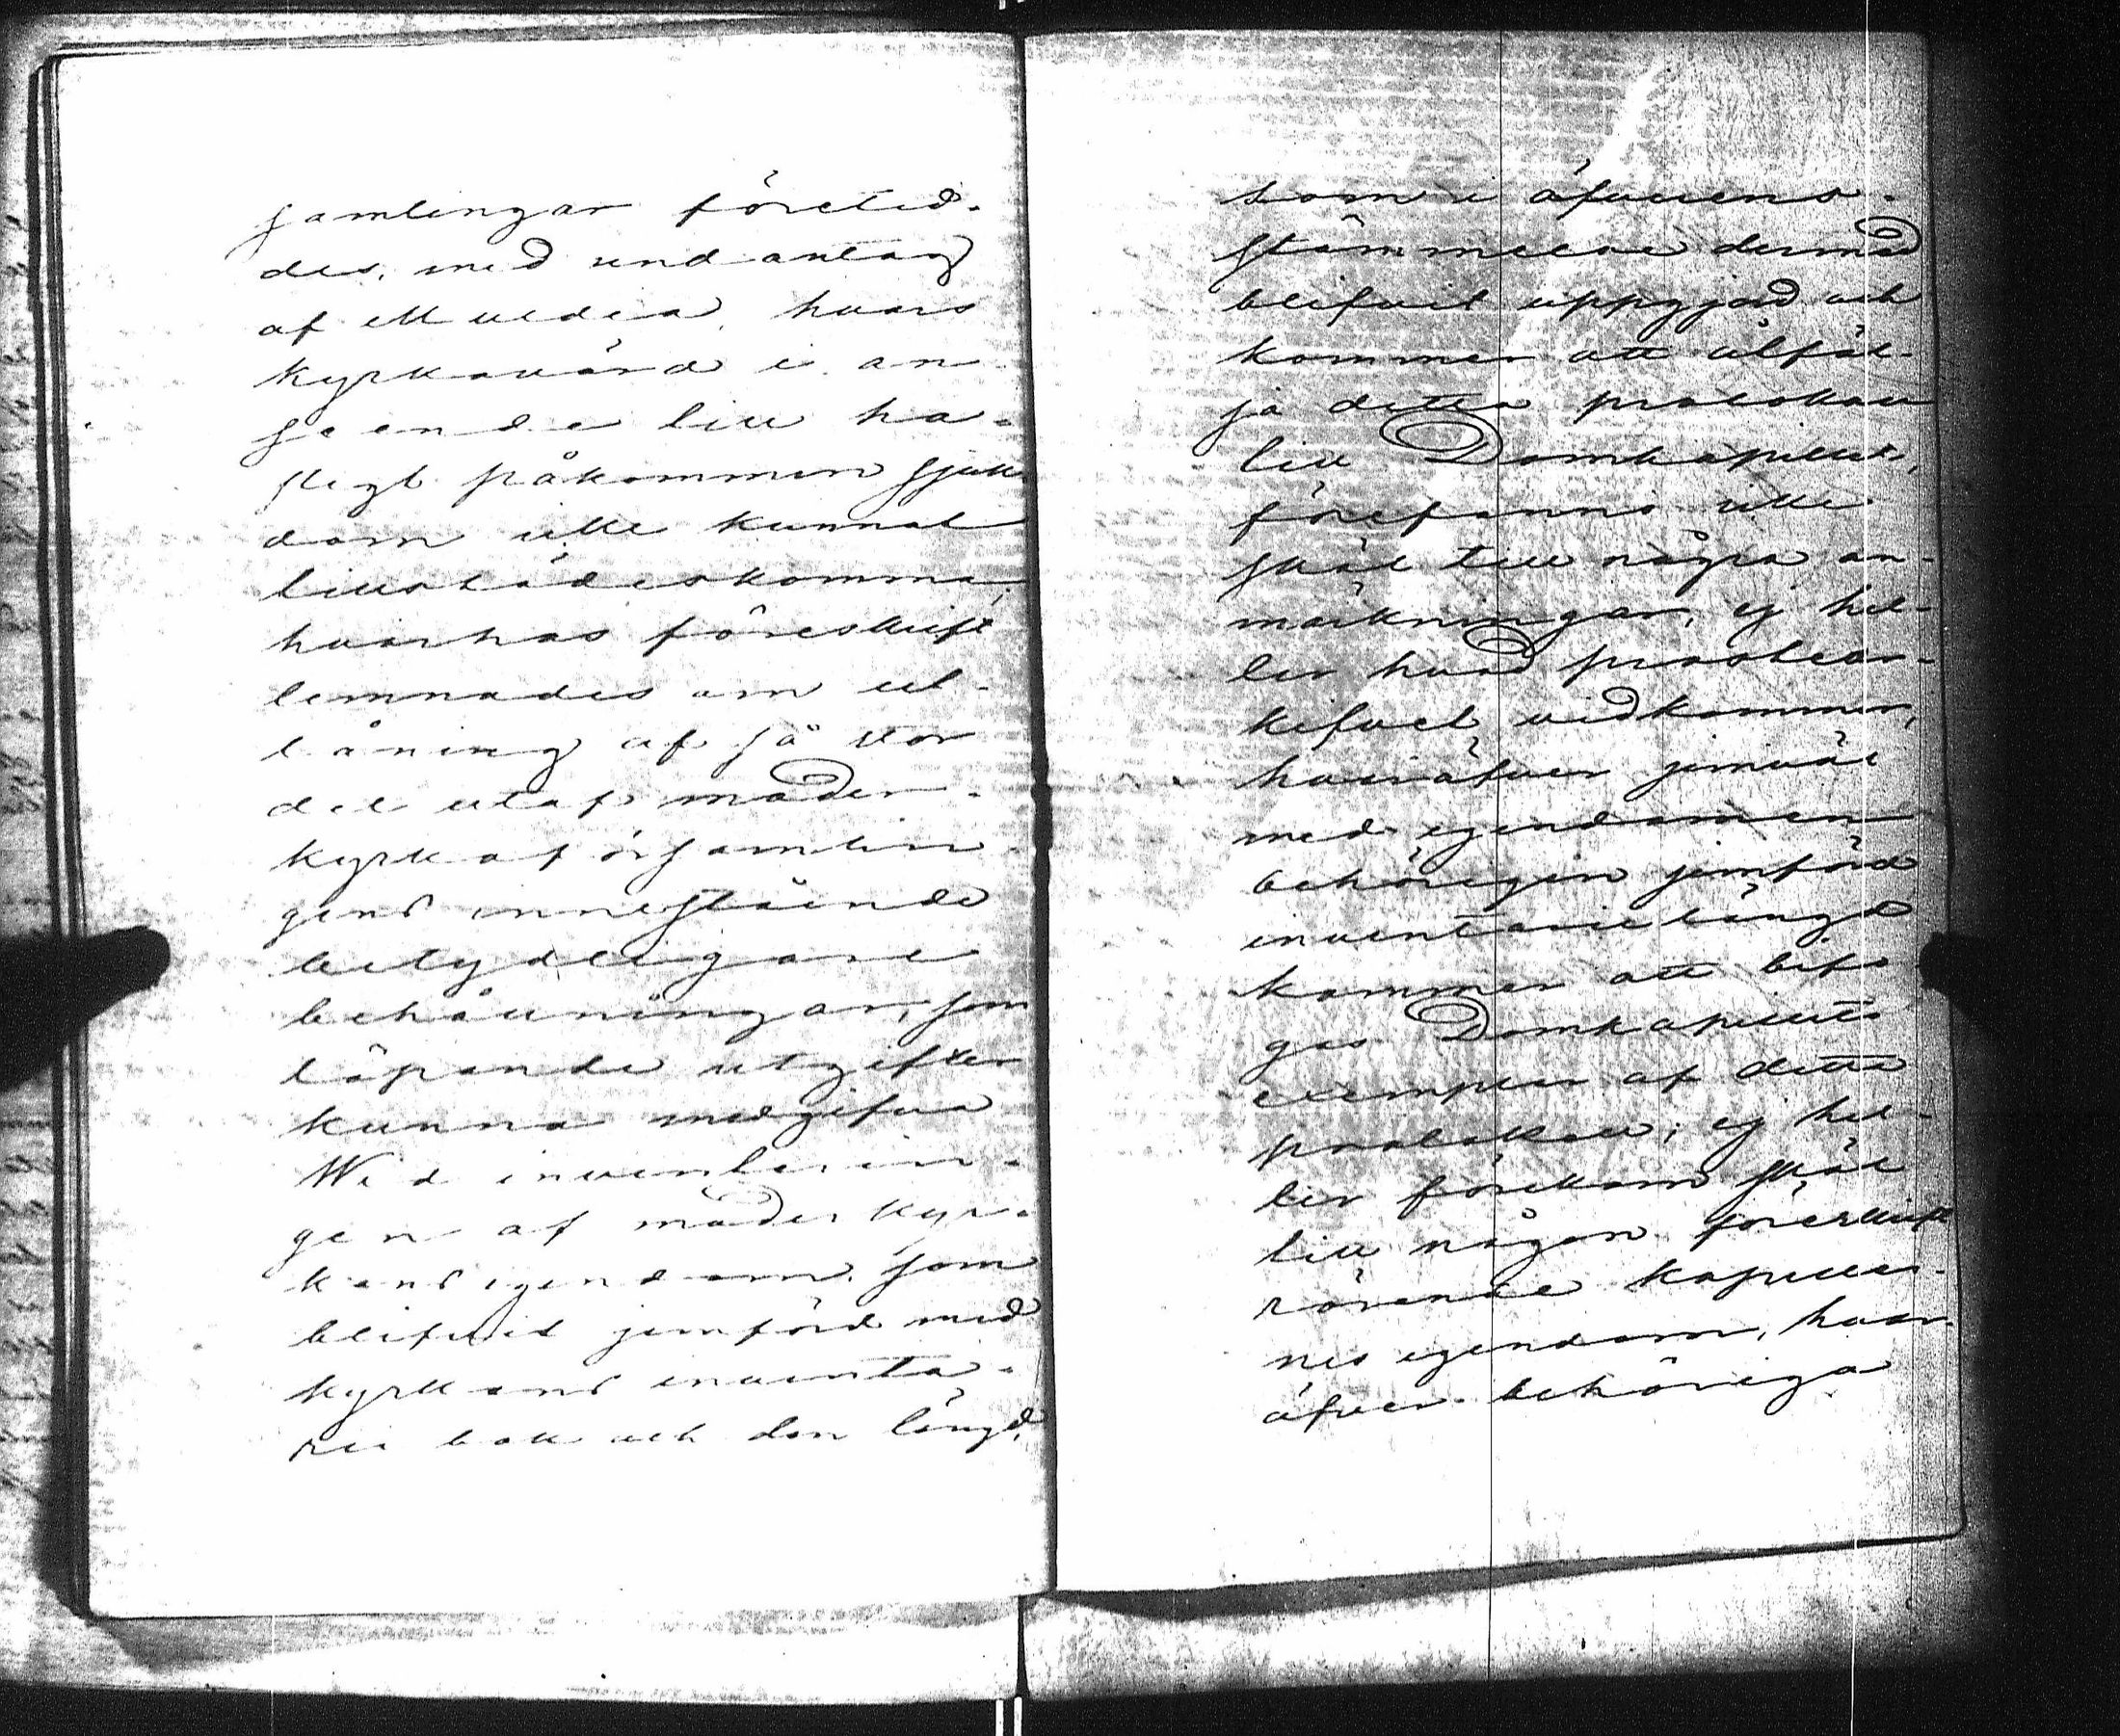 samlingar företed-
des, med undantag
af ett
kyrkovärd i an-
seende till ha-
stigt påkommen sjuk-
dom icke kunnat
tillstädeskomma;
hvarhos föreskrift
lemnades om ut-
låning af så stor
del utaf moder-
kyrkoförsamlin-
gens innestående
betydligare
behållningar, som
löpande utgifter
kunna medgifva
Wid inventerin-
gen af moderkyr-
kans egendom, som
blifvit jemförd med
kyrkans inventa-
rii bok och den längd,
som i öfverens-
stämmelse dermed
blifvit uppgjord och
kommer att åtföl-
ja detta protokoll
till Domkapitlet,
förefanns icke
skäl till några an-
märkningar, ej hel-
ler hvad prostear-
kifvet vidkommer,
hvaröfver jemväl
med egendomen
behörigen jemförd
inventarie längd
kommer att bifo-
gas Domkapitlets
exemplar af detta
protokoll; ej hel-
ler förekom skäl
till någon föreskrift
rörande kapeller-
nes egendom, hvar-
öfver behöriga